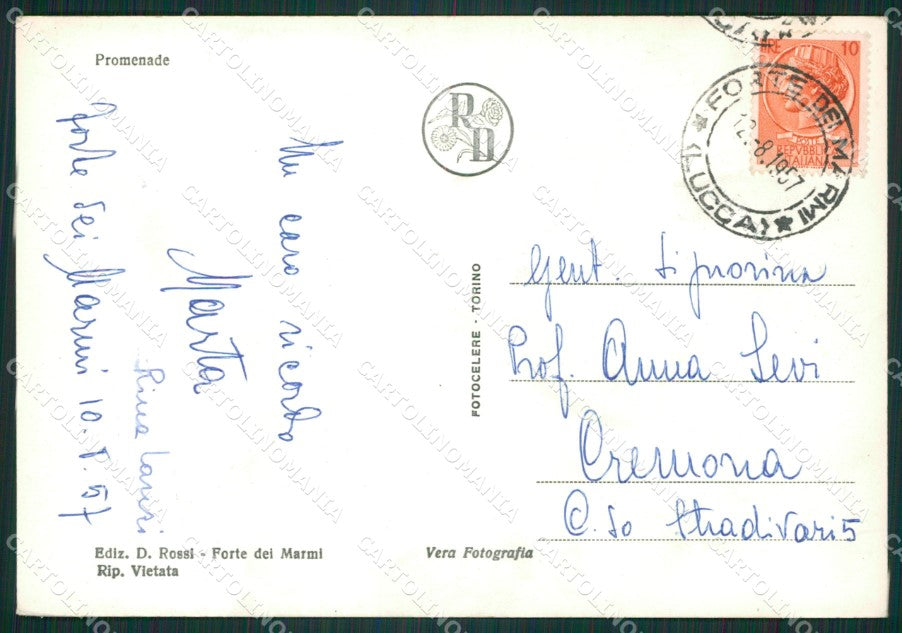 Promenade
Forte dei Marmi 10.8.57
Un caro ricordo
Marta
Rina
Ediz. D. Rossi - Forte dei Marmi
Rip. Vietata
Vera Fotografia
FOTOCELERE - TORINO
RD
LIRE 10
POSTE
REPVBBLICA
ITALIANA
FORTE DEI MARMI
(LUCCA)
12.-8.1957
Gent. Signorina
Prof. Anna Levi
Cremona
C.so Stradivari 5
CARTOLINOMANIA